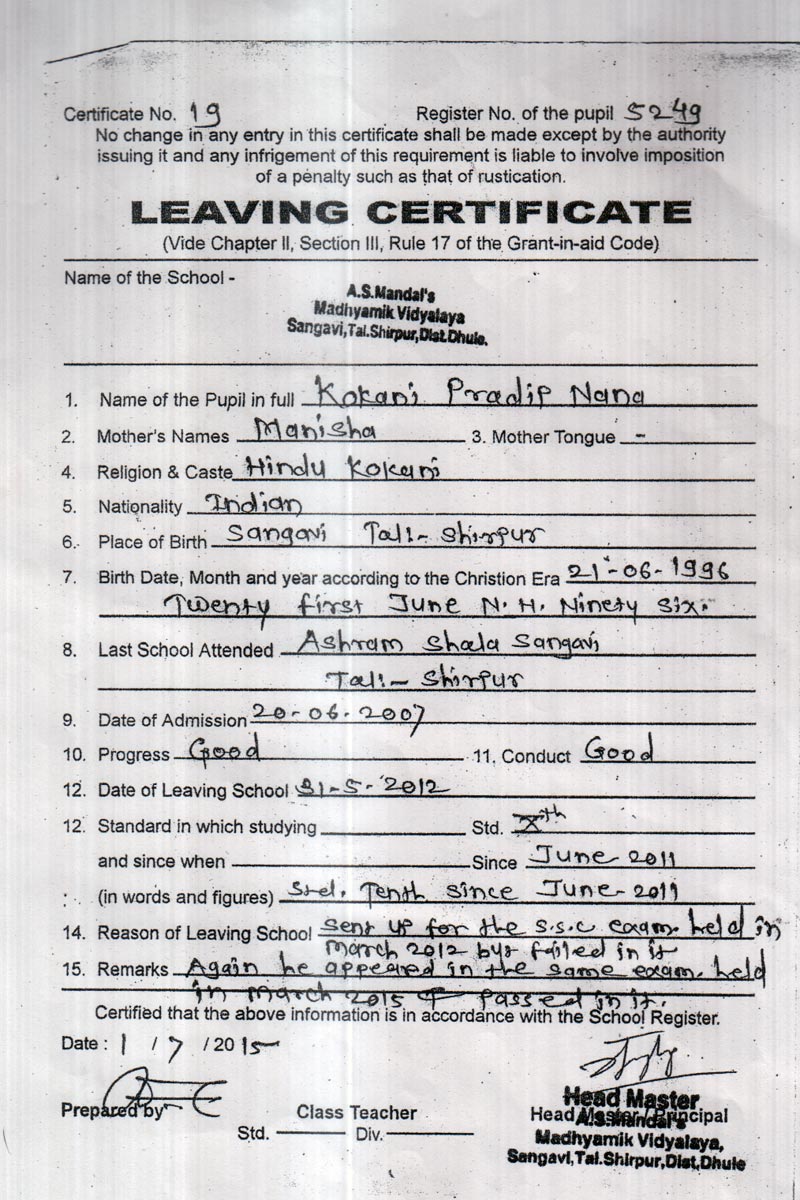 Certificate No. 19 Register No. of the pupil 5249
No change in any entry in this certificate shall be made except by the authority
issuing it and any infrigement of this requirement is liable to involve imposition
of a penalty such as that of rustication.
LEAVING CERTIFICATE
(Vide Chapter II, Section III, Rule 17 of the Grant-in-aid Code)
Name of the School -
A.S.Mandal's
Madhyamik Vidyalaya
Sangavi,Tal.Shirpur,Dist.Dhule.
1. Name of the Pupil in full Kokani Pradip Nana
2. Mother's Names Manisha 3. Mother Tongue -
4. Religion & Caste Hindu Kokani
5. Nationality Indian
6. Place of Birth Sangavi Tal:- Shirpur
7. Birth Date, Month and year according to the Christion Era 21-06-1996
Twenty first June N.H. Ninety six.
8. Last School Attended Ashram Shala Sangavi
Tal:- Shirpur
9. Date of Admission 20-06-2007
10. Progress Good 11. Conduct Good
12. Date of Leaving School 31-5-2012
12. Standard in which studying Std. Xth
and since when Since June-2011
(in words and figures) Std. Tenth since June-2011
14. Reason of Leaving School Sent up for the S.S.C exam. held in
March 2012 but failed in it
15. Remarks Again he appeared in the same exam. held
in March 2015 & passed in it.
Certified that the above information is in accordance with the School Register.
Date : 1 / 7 / 2015
Prepared by Class Teacher Head Master / Principal
Std. Div.
Head Master
A.S.Mandal's
Madhyamik Vidyalaya,
Sangavi,Tal.Shirpur,Dist,Dhule